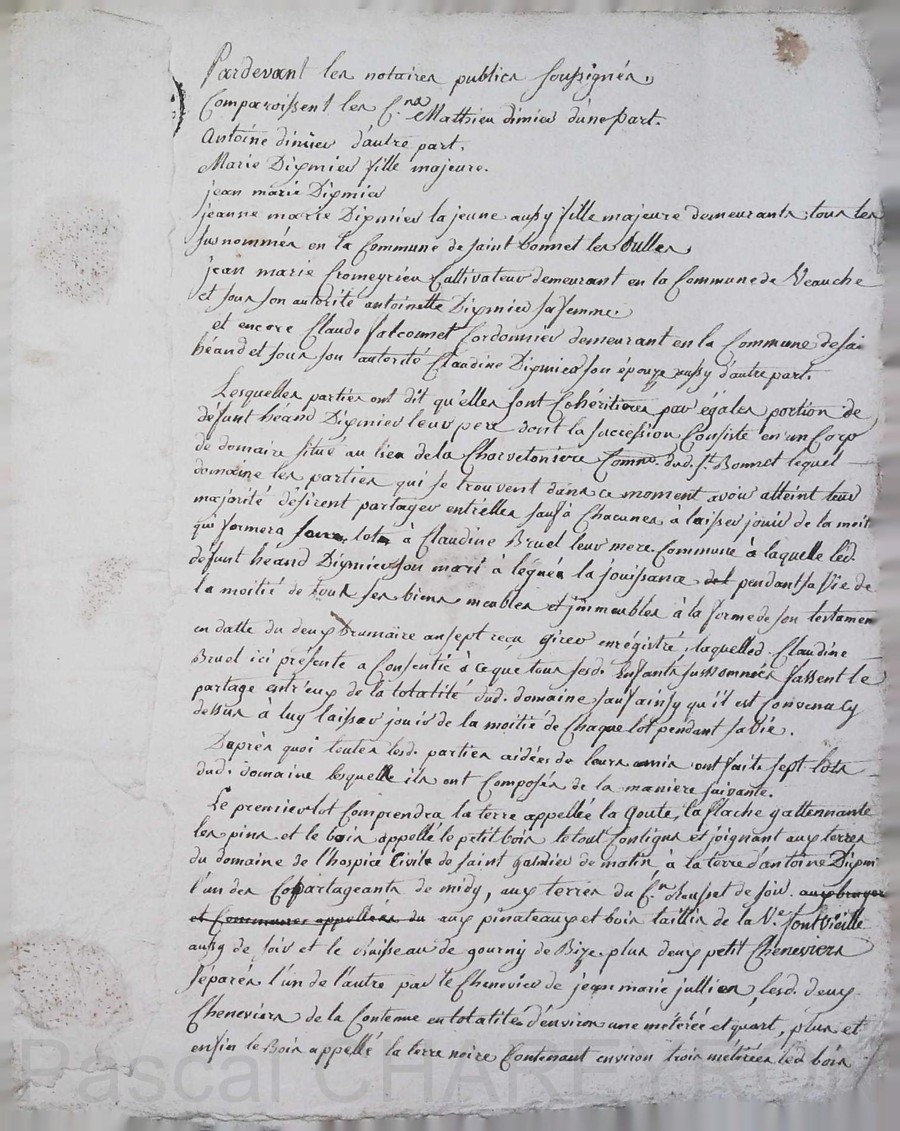 Pardevant les notaires publics soussignés,
Comparoissent les C.ns Mathieu dimier d'une part.
Antoine dimier d'autre part.
Marie Digmier fille majeure.
jean marie Digmier
jeanne marie Digmier la jeune aussy fille majeure demeurants tous les
susnommés en la Commune de saint bonnet les oulles
jean marie fromeyrieu Cultivateur demeurant en la Commune de Veauche
et sous son autorité antoinette Digmier sa femme.
et encore Claude falconnet Cordonnier demeurant en la Commune de Sai
héand et sous son autorité Claudine Digmier son épouze aussy d'autre part.
Lesquelles parties ont dit qu'elles sont Cohéritieres par égales portion de
défunt héand Digmier leur pere dont la succession Consiste en un Corp
de domaine situé au lieu de la Charvetoniere Comne. dud. St. Bonnet lequel
domaine les parties qui se trouvent dans ce moment avoir atteint leur
majorité désirent partager entrelles sauf à Chacunes à laisser jouir de la moit
qui formera lots à Claudine Bruel leur mere Commune à laquelle led.
défunt héand Digmier son mari à légués la jouissance pendant sa vie de
la moitié de tous ses biens meubles et immeubles à la forme de son testamen
en datte du deux brumaire an sept reçu girer enrégistré, laquelle d. Claudine
Bruel ici présente a Consentie à ceque tous sesd. Enfants susnommés fassent le
partage entr'eux de la totalité dud. domaine sauf ainsy qu'il est convenu cy
dessus à luy laisser jouir de la moitié de Chaque lot pendant sa vie.
Daprès quoi toutes lesd. parties aidées de leurs amis ont fait sept lots
dud. domaine lesquelle ils ont Composés de la maniere suivante.
Le premier lot Comprendra la terre appellée la Goute, la flache gattennante
les pins et le bois appellé le petit bois le tout Contigus et joignant aux terres
du domaine de l'hospice Civile de saint galmier de matin, a la terre d'antoine Digmi
l'un des Copartageants de midy, aux terres du C.n de soir. aux
et Communes appellées du aux pinateaux et bois taillis de la Ve. fontvieille
aussy de soir et le ruisseau de gourny de Bize plus deux petit Cheneviers
séparés l'un de l'autre par le Chenevier de jean marie jullien, lesd. deux
Cheneviers de la Contenue en totalité d'environ une métérée et quart, plus et
enfin le Bois appellé la terre noire Contenant environ trois métérées led. bois
Pascal CHAREYRON